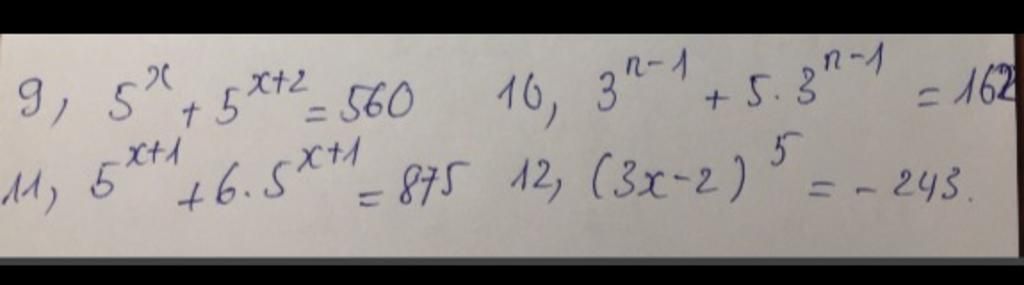 9, 5^x + 5^{x+2} = 560 10, 3^{n-1} + 5 . 3^{n-1} = 162
11, 5^{x+1} + 6 . 5^{x+1} = 875 12, (3x-2)^5 = - 243.